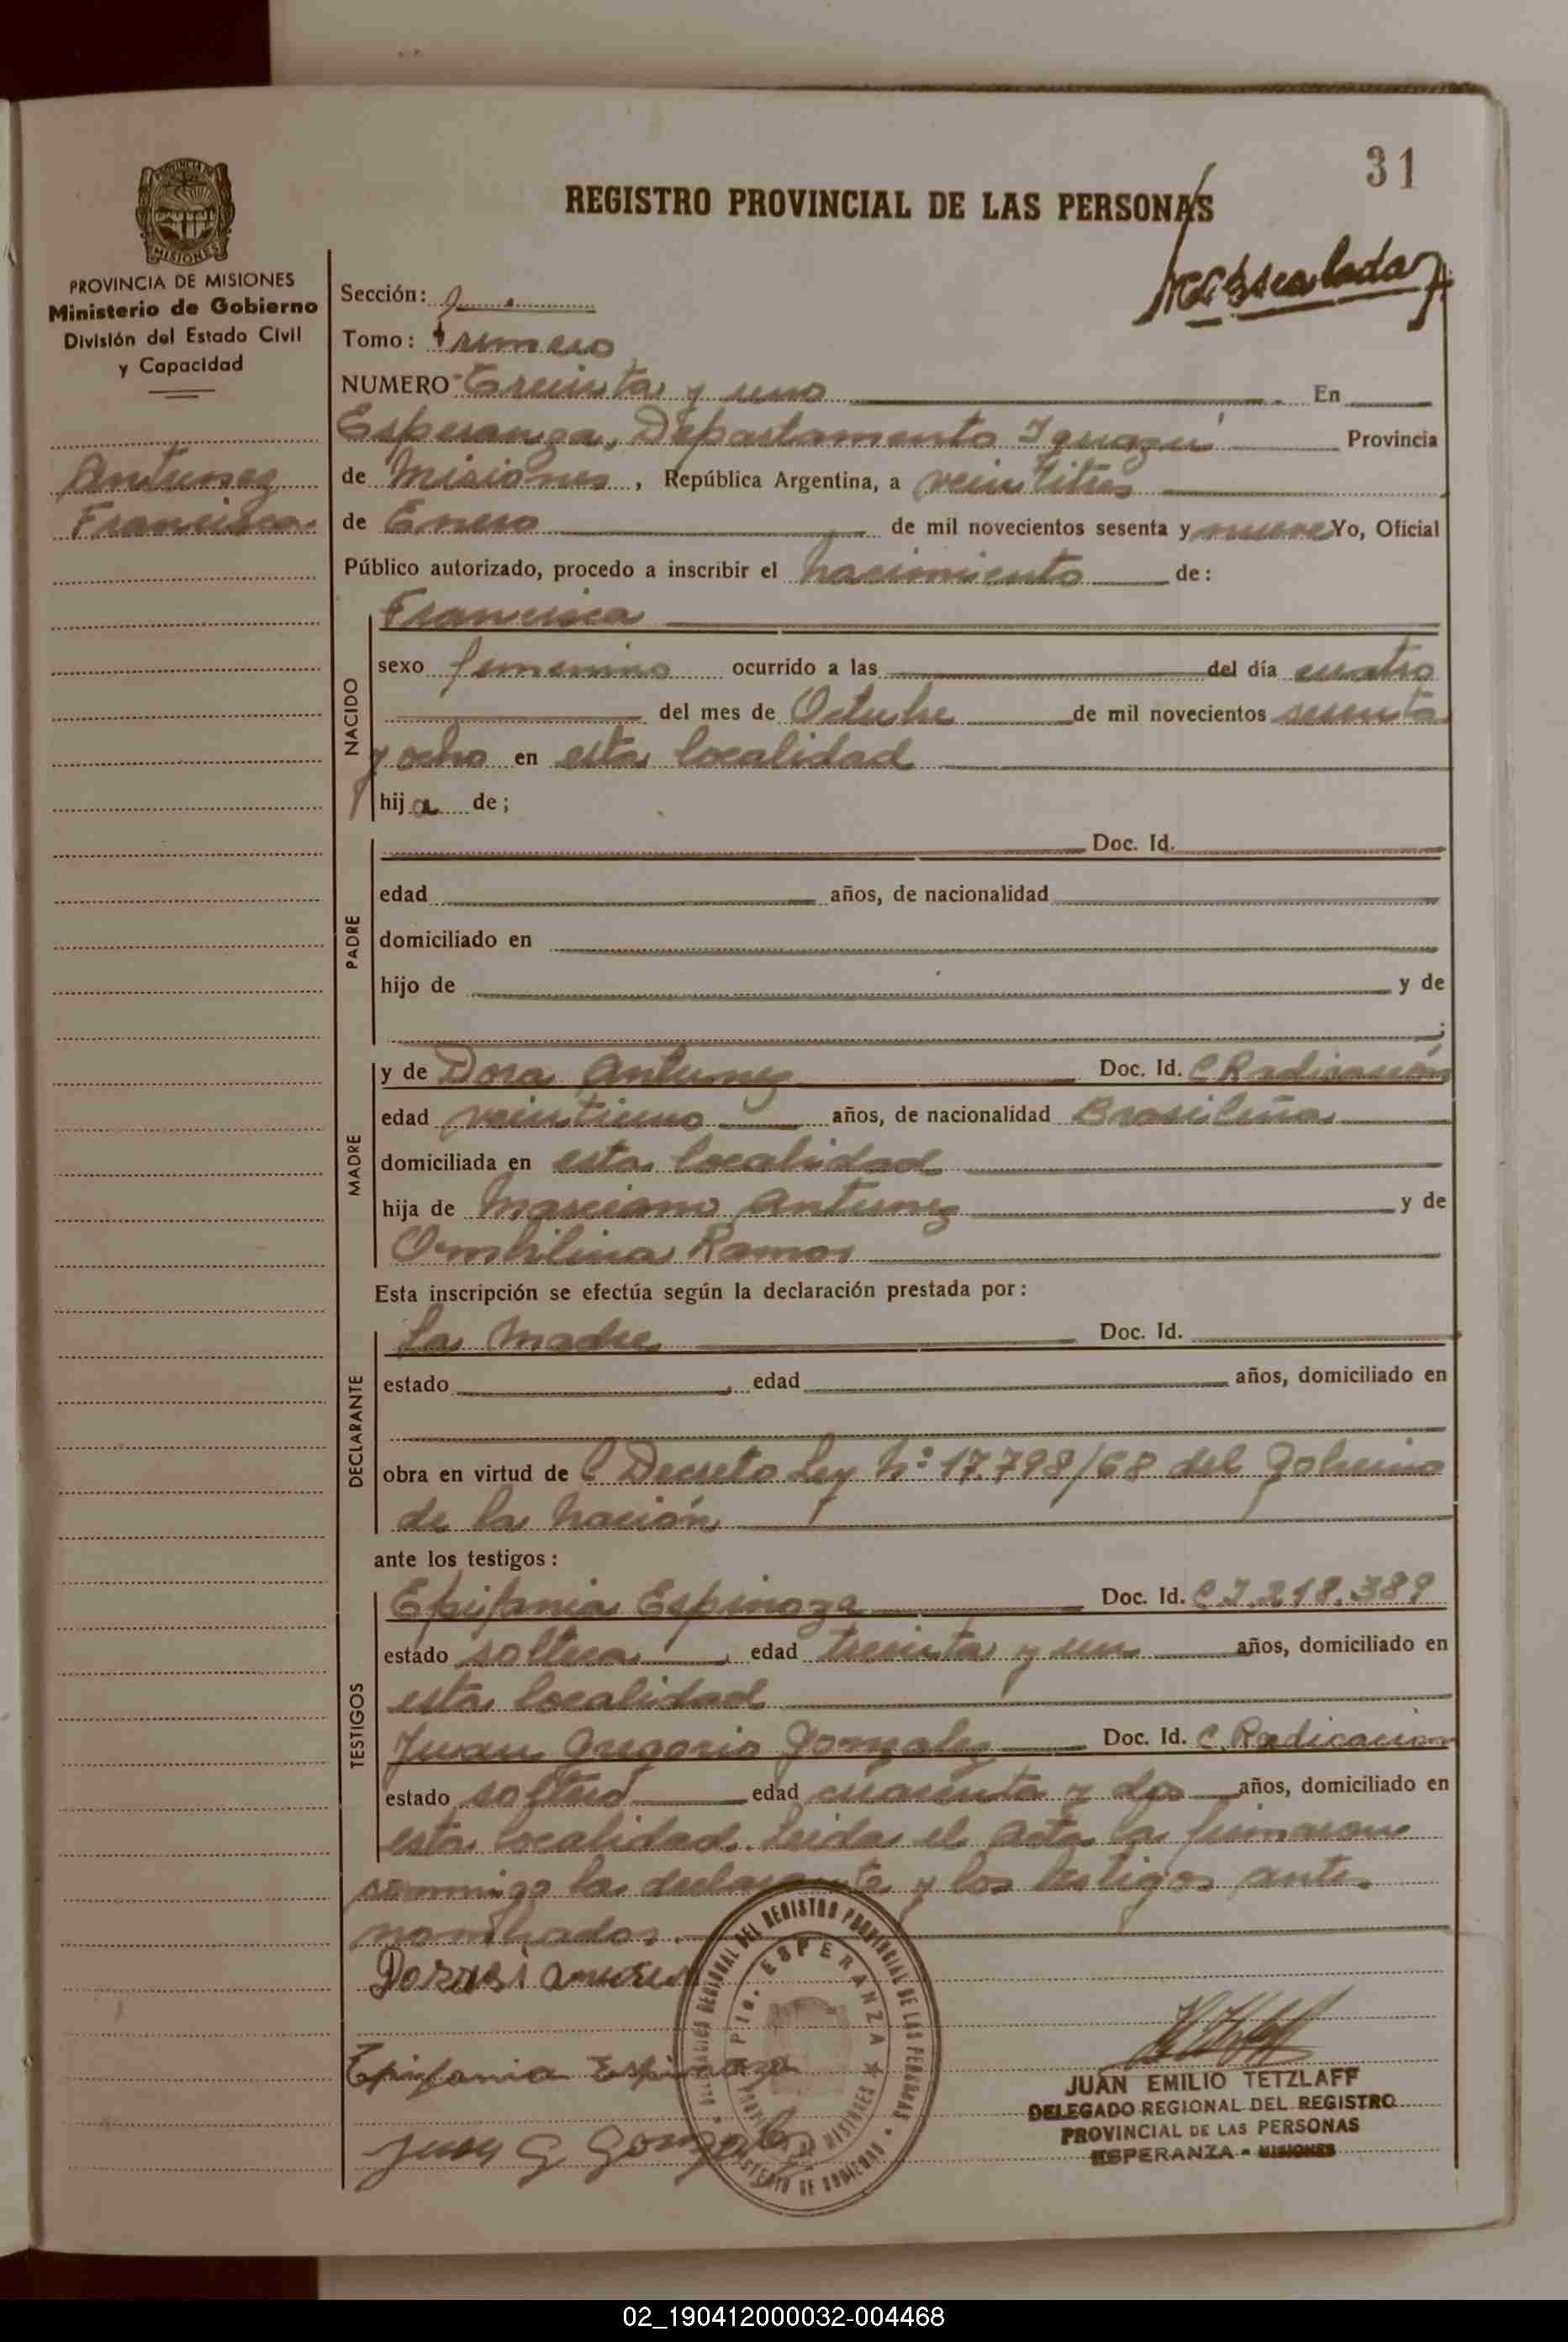 31
REGISTRO PROVINCIAL DE LAS PERSONAS
PROVINCIA DE MISIONES
Ministerio de Gobierno
División del Estado Civil
y Capacidad
Antunez
Francisca
Sección:
Tomo: Primero
NUMERO Treinta y uno En
Esperanza, Departamento Iguazú Provincia
de Misiones, República Argentina, a veintitres
de Enero de mil novecientos sesenta y nueve Yo, Oficial
Público autorizado, procedo a inscribir el nacimiento de:
NACIDO
Francisca
sexo femenino ocurrido a las del día cuatro
del mes de Octubre de mil novecientos sesenta
y ocho en esta localidad
hija de;
PADRE
Doc. Id.
edad años, de nacionalidad
domiciliado en
hijo de y de
;
MADRE
y de Dora Antunez Doc. Id. C Radicación
edad veintiuno años, de nacionalidad Brasileña
domiciliada en esta localidad
hija de Marciano Antunez y de
Ramos
Esta inscripción se efectúa según la declaración prestada por:
DECLARANTE
La Madre Doc. Id.
estado, edad años, domiciliado en
obra en virtud de l Decreto Ley Nº 17.798/68 del Gobierno
de la Nación
ante los testigos:
TESTIGOS
Epifania Espinoza Doc. Id. C.I. 218.389
estado soltera, edad treinta y un años, domiciliado en
esta localidad
Juan Gregorio Gonzalez Doc. Id. C. Radicación
estado soltero edad cuarenta y dos años, domiciliado en
esta localidad. Leida el acta la firmaron
conmigo la declarante y los testigos ante
nombrados.
Epifania Espinoza
Juan G Gonzalez
DELEGACION REGIONAL DEL REGISTRO PROVINCIAL DE LAS PERSONAS
MINISTERIO DE GOBIERNO
Pto. ESPERANZA
PROVINCIA MISIONES
JUAN EMILIO TETZLAFF
DELEGADO REGIONAL DEL REGISTRO
PROVINCIAL DE LAS PERSONAS
ESPERANZA - MISIONES
02_190412000032-004468